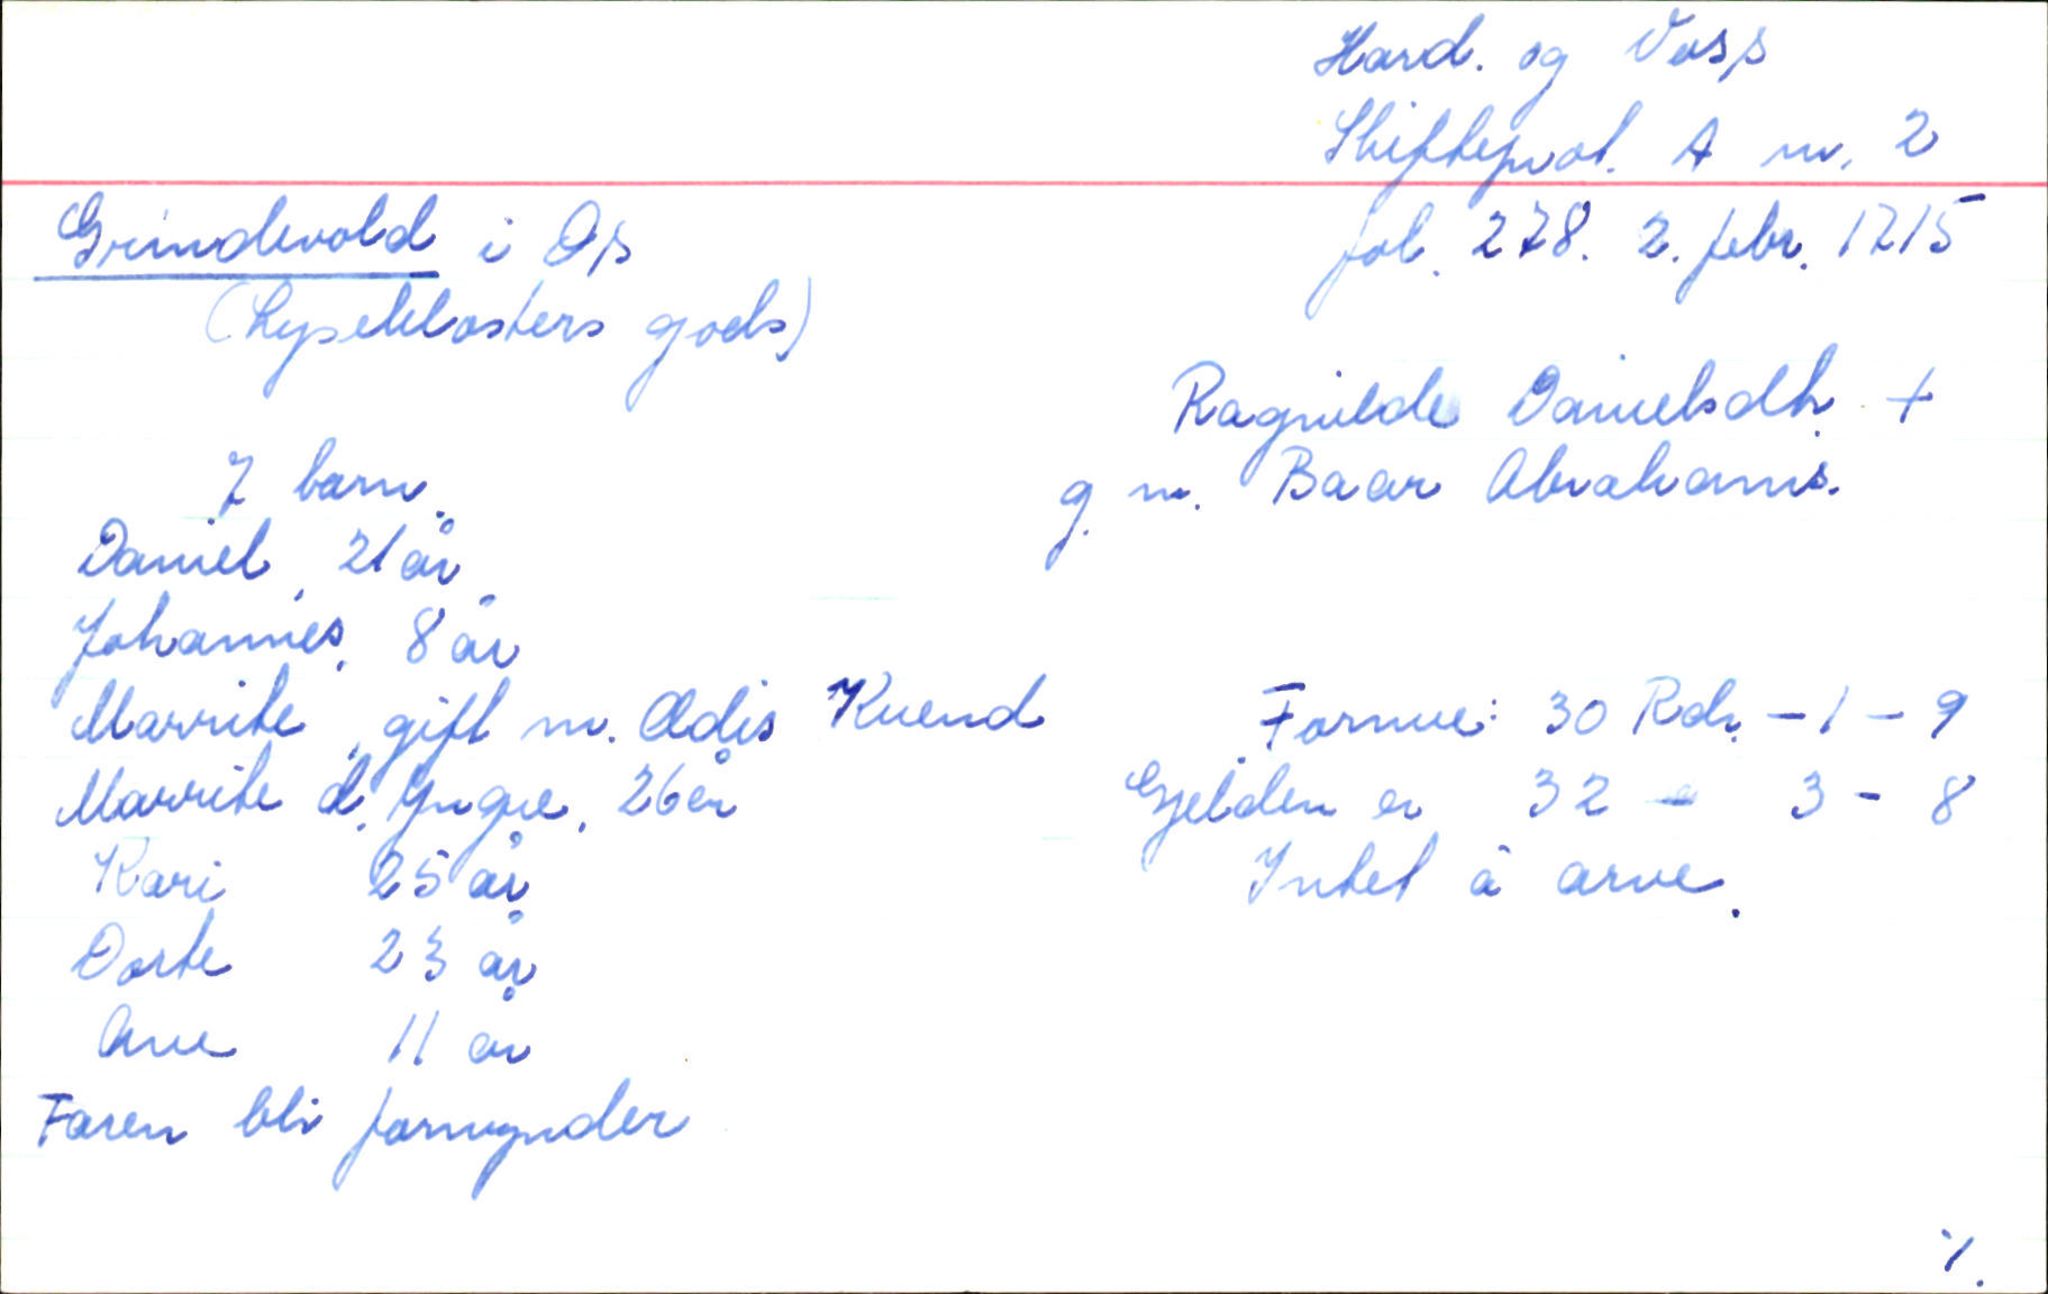 Hard. og Voss
Skifteprot. A nr. 2
fol. 278. 2. febr. 1715
Grindevold i Os
(Lyseklosters gods)
Ragnilde Danielsdtr. +
g. m. Baar Abrahams.
7 barn.
Daniel, 21 år
Johannes, 8 år
Marrite, gift m. Ædis Kuend
Marrite d. Yngre, 26 år
Kari 25 år
Dorte 23 år
Ane 11 år
Faren bli formynder
Formue: 30 Rdr. - 1 - 9
Gjelden er 32 - 3 - 8
Intet å arve.